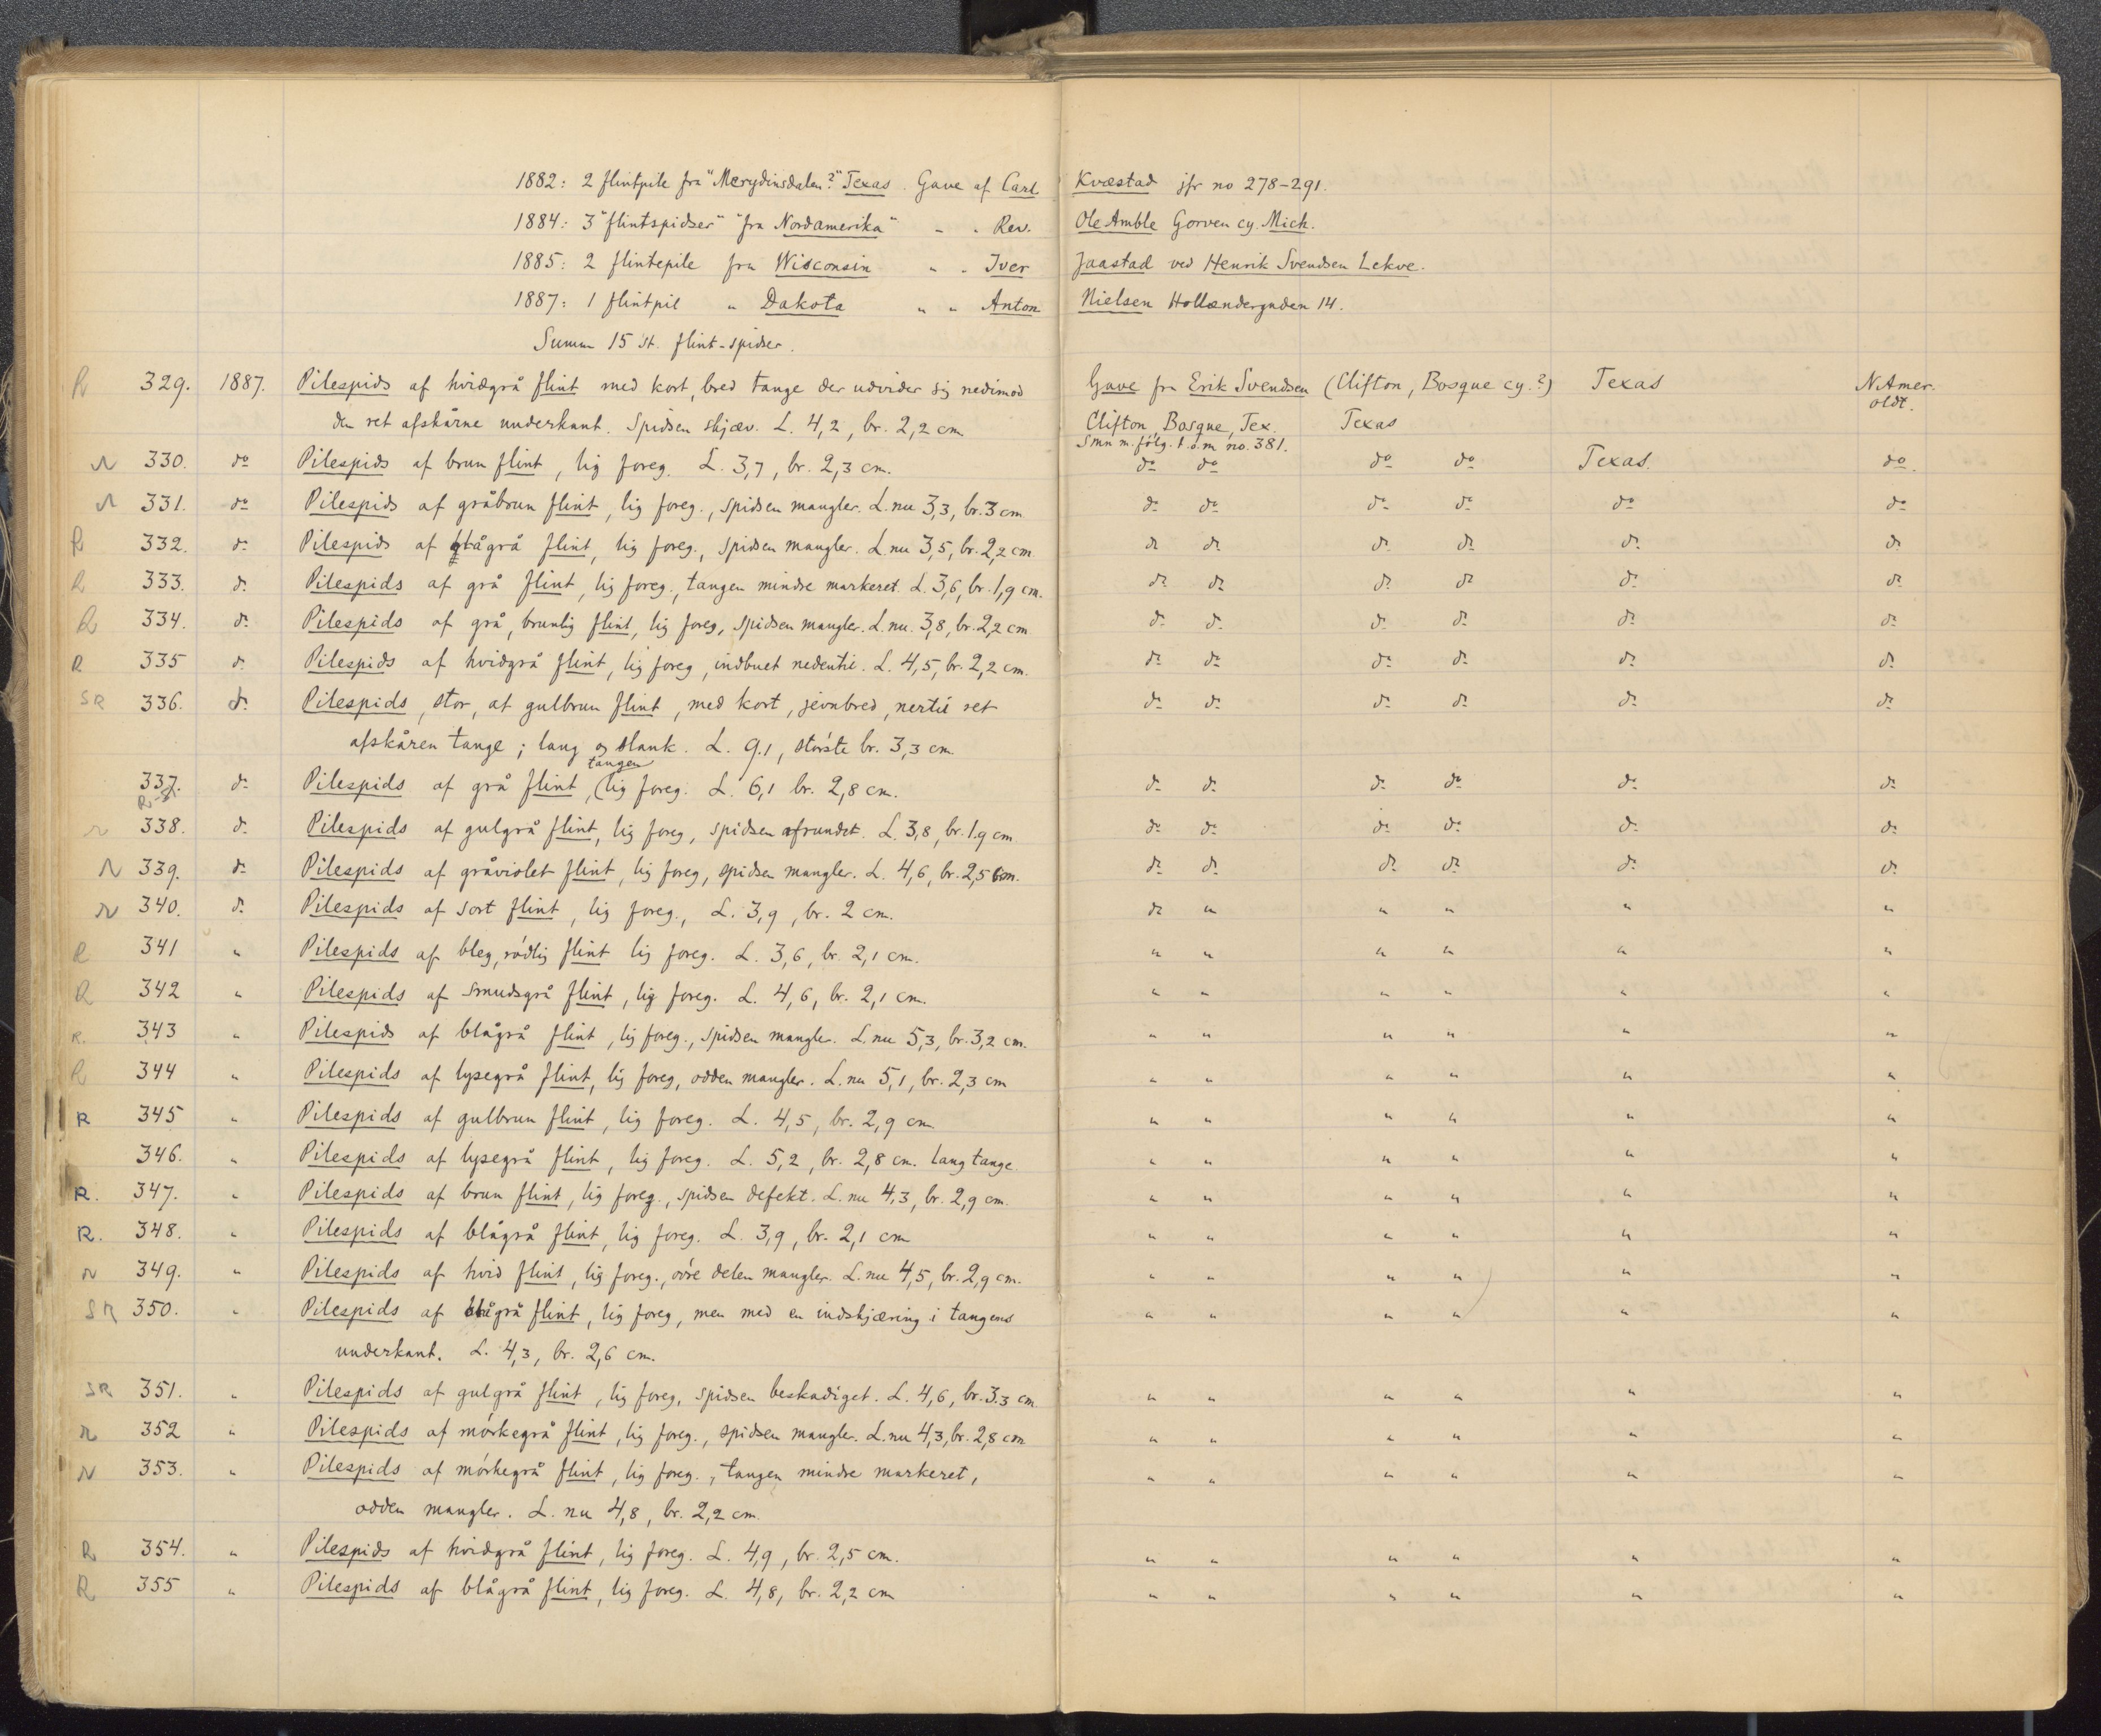 1882: 2 flintpile fra "Merydinsdalen?" Texas. Gave af Carl Kvæstad jfr no 278-291.
1884: 3 "flintspidser" "fra Nordamerika" " " Rev. Ole Amble Gorven cy. Mich.
1885: 2 flintepile fra Wisconsin " " Iver Jaastad ved Henrik Svendsen Lekve.
1887: 1 flintpil " Dakota " " Anton Nielsen Hollændergaden 14.
Summa 15 st. flint-spidser.
R 329. 1887. Pilespids af hvidgrå flint med kort, bred tange der udvider sig nedimod Gave fra Erik Svendsen (Clifton, Bosque cy.?) Texas N.Amer. oldt.
den ret afskårne underkant. Spidsen skjæv. L. 4,2, br. 2,2 cm Clifton, Bosque, Tex. Texas
Smn m. følg. t.o.m no. 381.
R 330. do Pilespids af brun flint, lig foreg. L. 3,7, br. 2,3 cm. do do do do Texas. do.
R 331. do Pilespids af gråbrun flint, lig foreg., spidsen mangler. L. nu 3,3, br. 3 cm do do do do do do
R 332. do Pilespids af blågrå flint, lig foreg., spidsen mangler. L. nu 3,5, br. 2,2 cm do do do do do do
R 333. do Pilespids af grå flint, lig foreg., tangen mindre markeret. L. 3,6, br. 1,9 cm. do do do do do do
R 334. do Pilespids af grå, brunlig flint, lig foreg, spidsen mangler. L. nu. 3,8, br. 2,2 cm do do do do do do
R 335 do Pilespids af hvidgrå flint, lig foreg, indbuet nedentil. L. 4,5, br. 2,2 cm. do do do do do do
SR 336. do Pilespids, stor, af gulbrun flint, med kort, jevnbred, nertil ret do do do do do do
afskåren tange; lang og slank. L. 9.1, største br. 3,3 cm.
337. do Pilespids af grå flint, (tangen lig foreg. L. 6,1 br. 2,8 cm. do do do do do do
R 338. do Pilespids af gulgrå flint, lig foreg, spidsen afrundet. L. 3,8, br. 1.9 cm do do do do do do
R 339. do Pilespids af gråviolet flint, lig foreg, spidsen mangler. L. 4,6, br. 2,5 cm. do do do do do do
R 340. do Pilespids af sort flint, lig foreg., L. 3,9, br. 2 cm. do " " " " "
R 341 " Pilespids af bleg, rødlig flint lig foreg. L. 3,6, br. 2,1 cm. " " " " " "
R 342 " Pilespids af smudsgrå flint, lig foreg. L. 4,6, br. 2,1 cm. " " " " " "
R. 343 " Pilespids af blågrå flint, lig foreg., spidsen mangler. L. nu 5,3, br. 3,2 cm. " " " " " "
R 344 " Pilespids af lysegrå flint, lig foreg, odden mangler. L. nu 5,1, br. 2,3 cm " " " " " "
R 345 " Pilespids af gulbrun flint, lig foreg. L. 4,5, br. 2,9 cm " " " " " "
346. " Pilespids af lysegrå flint, lig foreg. L. 5,2, br. 2,8 cm. Lang tange. " " " " " "
R. 347. " Pilespids af brun flint, lig foreg., spidsen defekt. L. nu 4,3, br. 2,9 cm. " " " " " "
R. 348. " Pilespids af blågrå flint, lig foreg. L. 3,9, br. 2,1 cm " " " " " "
R 349. " Pilespids af hvid flint, lig foreg., øvre delen mangler. L. nu 4,5, br. 2,9 cm. " " " " " "
SR 350. " Pilespids af blågrå flint, lig foreg, men med en indskjæring i tangens " " " " " "
underkant. L. 4,3, br. 2,6 cm.
SR 351. " Pilespids af gulgrå flint, lig foreg, spidsen beskadiget. L. 4,6, br. 3.3 cm. " " " " " "
R 352 " Pilespids af mørkegrå flint, lig foreg., spidsen mangler. L. nu 4,3, br. 2,8 cm " " " " " "
R 353. " Pilespids af mørkegrå flint, lig foreg., tangen mindre markeret, " " " " " "
odden mangler. L. nu 4,8, br. 2,2 cm.
R 354. " Pilespids af hvidgrå flint, lig foreg. L. 4,9, br. 2,5 cm. " " " " " "
R 355 " Pilespids af blågrå flint, lig foreg. L. 4,8, br. 2,2 cm " " " " " "